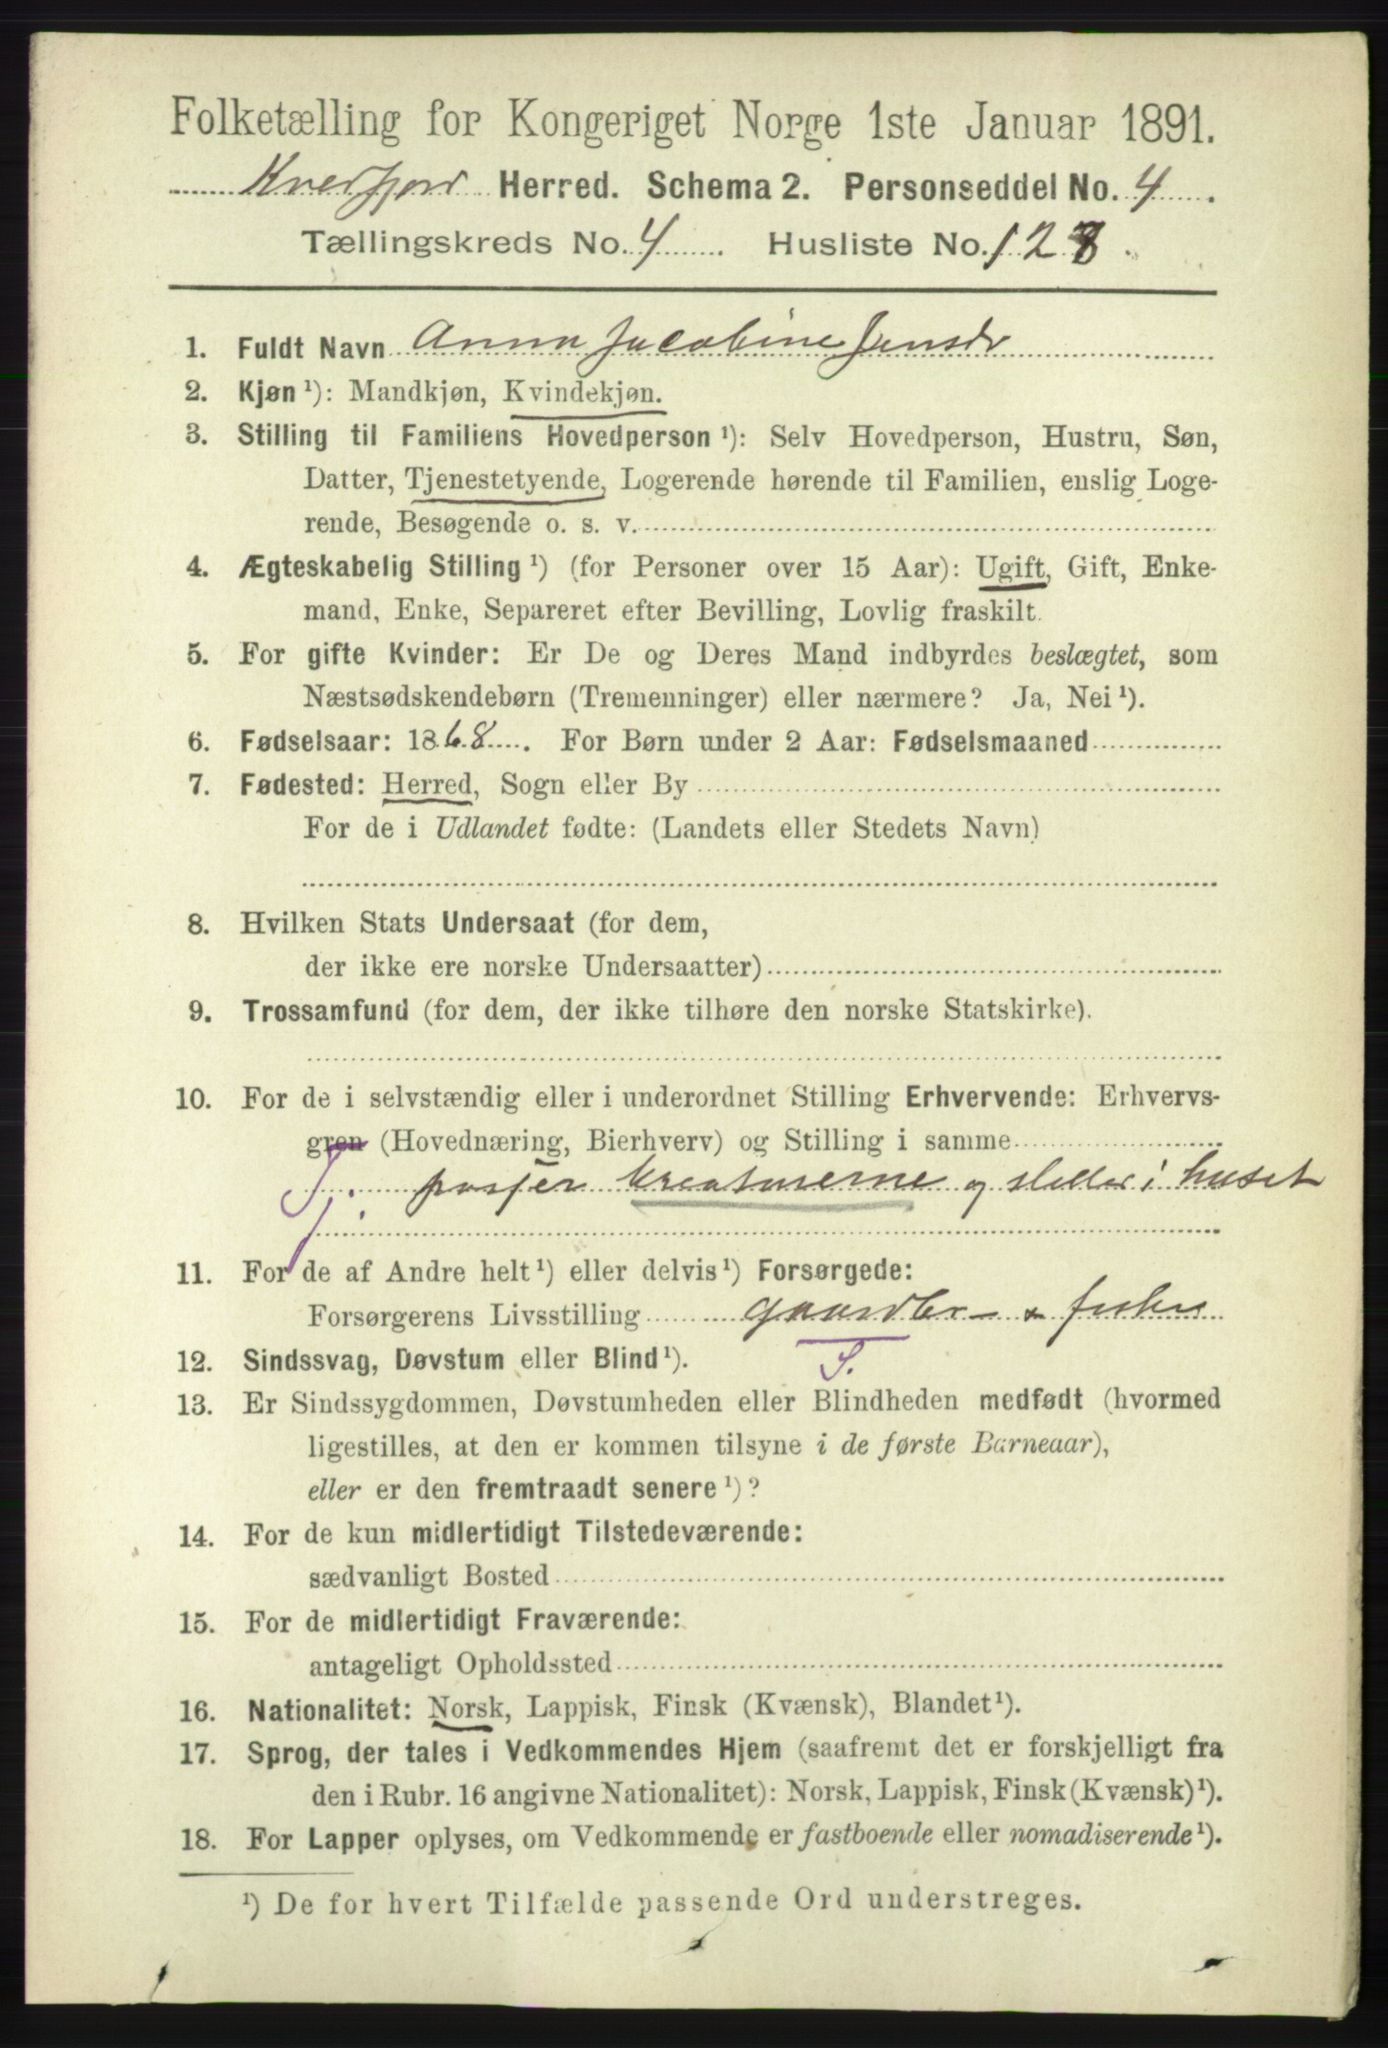 Folketælling for Kongeriget Norge 1ste Januar 1891.
Kvæfjord Herred. Schema 2. Personseddel No. 4.
Tællingskreds No. 4. Husliste No. 128.
1. Fuldt Navn Anna Jacobine Jensdr
2. Kjøn¹): Mandkjøn, Kvindekjøn.
3. Stilling til Familiens Hovedperson¹): Selv Hovedperson, Hustru, Søn,
Datter, Tjenestetyende, Logerende hørende til Familien, enslig Loge-
rende, Besøgende o. s. v.
4. Ægteskabelig Stilling¹) (for Personer over 15 Aar): Ugift, Gift, Enke-
mand, Enke, Separeret efter Bevilling, Lovlig fraskilt.
5. For gifte Kvinder: Er De og Deres Mand indbyrdes beslægtet, som
Næstsødskendebørn (Tremenninger) eller nærmere? Ja, Nei¹).
6. Fødselsaar: 1868. For Børn under 2 Aar: Fødselsmaaned
7. Fødested: Herred, Sogn eller By
For de i Udlandet fødte: (Landets eller Stedets Navn)
8. Hvilken Stats Undersaat (for dem,
der ikke ere norske Undersaatter)
9. Trossamfund (for dem, der ikke tilhøre den norske Statskirke).
10. For de i selvstændig eller i underordnet Stilling Erhvervende: Erhvervs-
gren (Hovednæring, Bierhverv) og Stilling i samme
Tj. passer kreaturerne og steller i huset
11. For de af Andre helt¹) eller delvis¹) Forsørgede:
Forsørgerens Livsstilling gaardbr & fisker
12. Sindssvag, Døvstum eller Blind¹). S.
13. Er Sindssygdommen, Døvstumheden eller Blindheden medfødt (hvormed
ligestilles, at den er kommen tilsyne i de første Barneaar),
eller er den fremtraadt senere¹)?
14. For de kun midlertidigt Tilstedeværende:
sædvanligt Bosted
15. For de midlertidigt Fraværende:
antageligt Opholdssted
16. Nationalitet: Norsk, Lappisk, Finsk (Kvænsk), Blandet¹).
17. Sprog, der tales i Vedkommendes Hjem (saafremt det er forskjelligt fra
den i Rubr. 16 angivne Nationalitet): Norsk, Lappisk, Finsk (Kvænsk)¹).
18. For Lapper oplyses, om Vedkommende er fastboende eller nomadiserende¹).
¹) De for hvert Tilfælde passende Ord understreges.